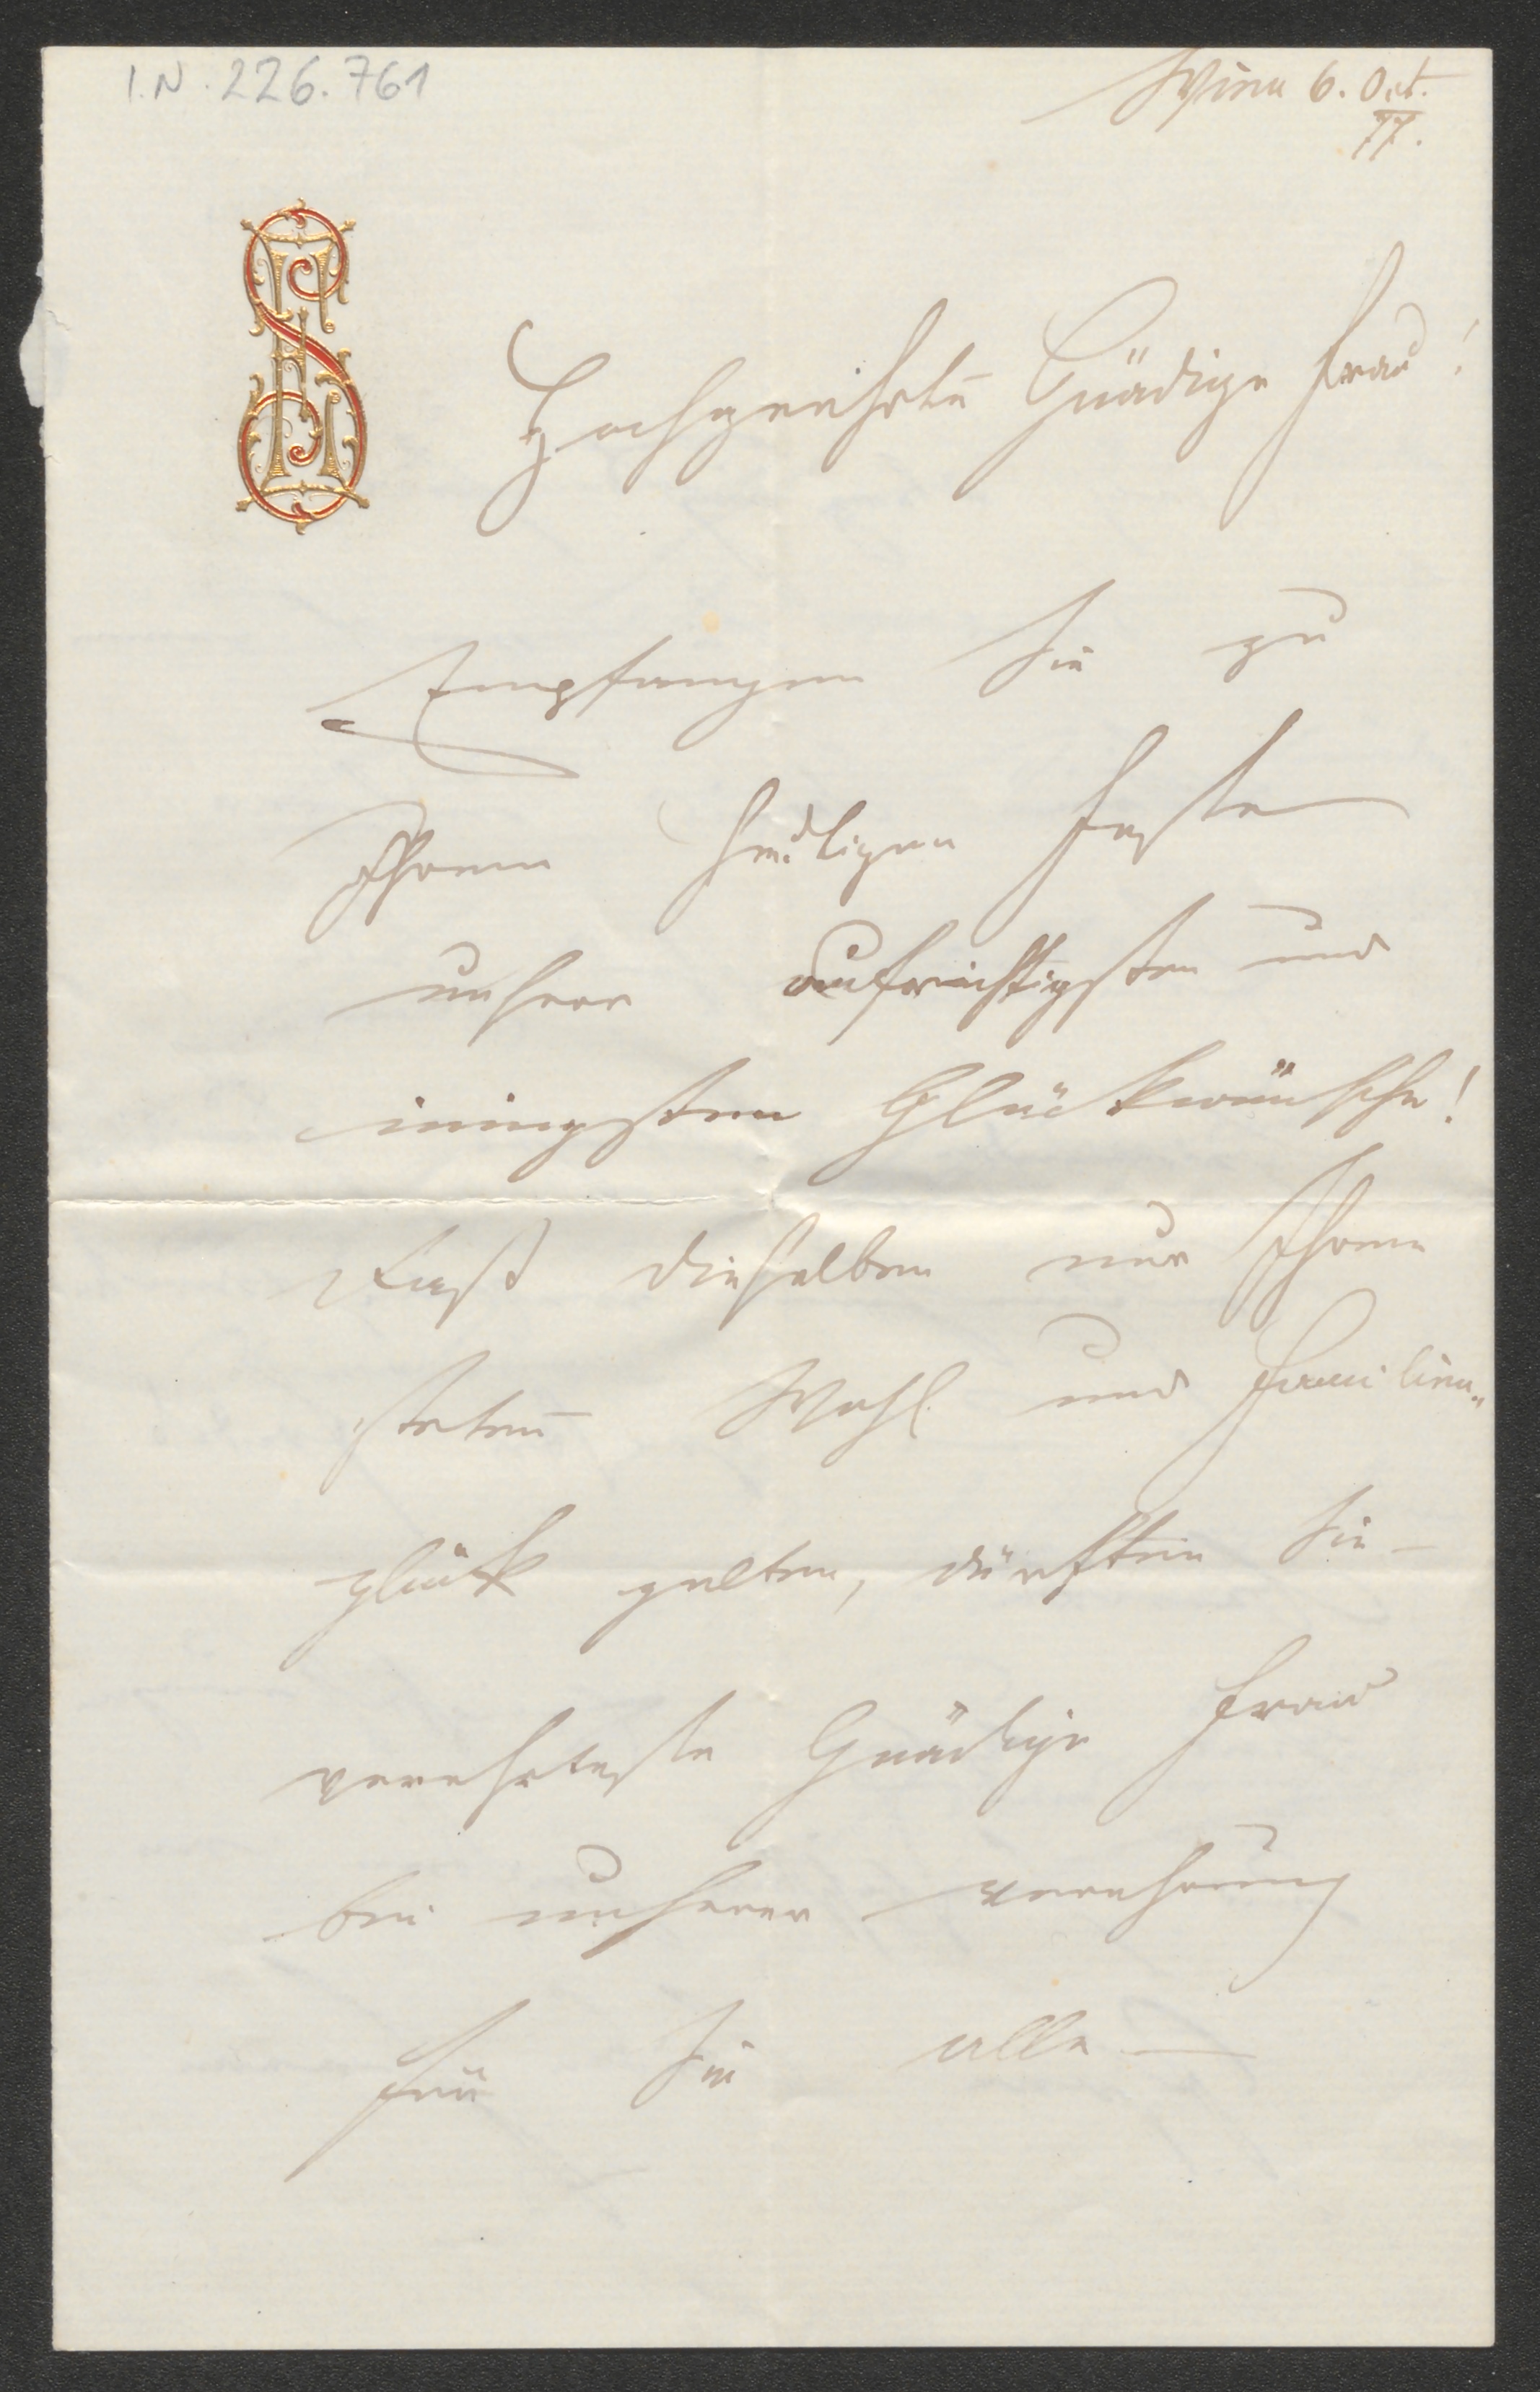 I.N. 226.761
Wien 6. Oct.
77.
Hochgeehrte Gnädige Frau!
Empfangen Sie zu
Ihrem heutigen Feste
unsere aufrichtigsten und
innigsten Glückwünsche!
Daß dieselben nur Ihrem
steten Wohl und Familien„
glück gelten, dürften Sie –
verehrteste Gnädige Frau
bei unserer Verehrung
für Sie alle –